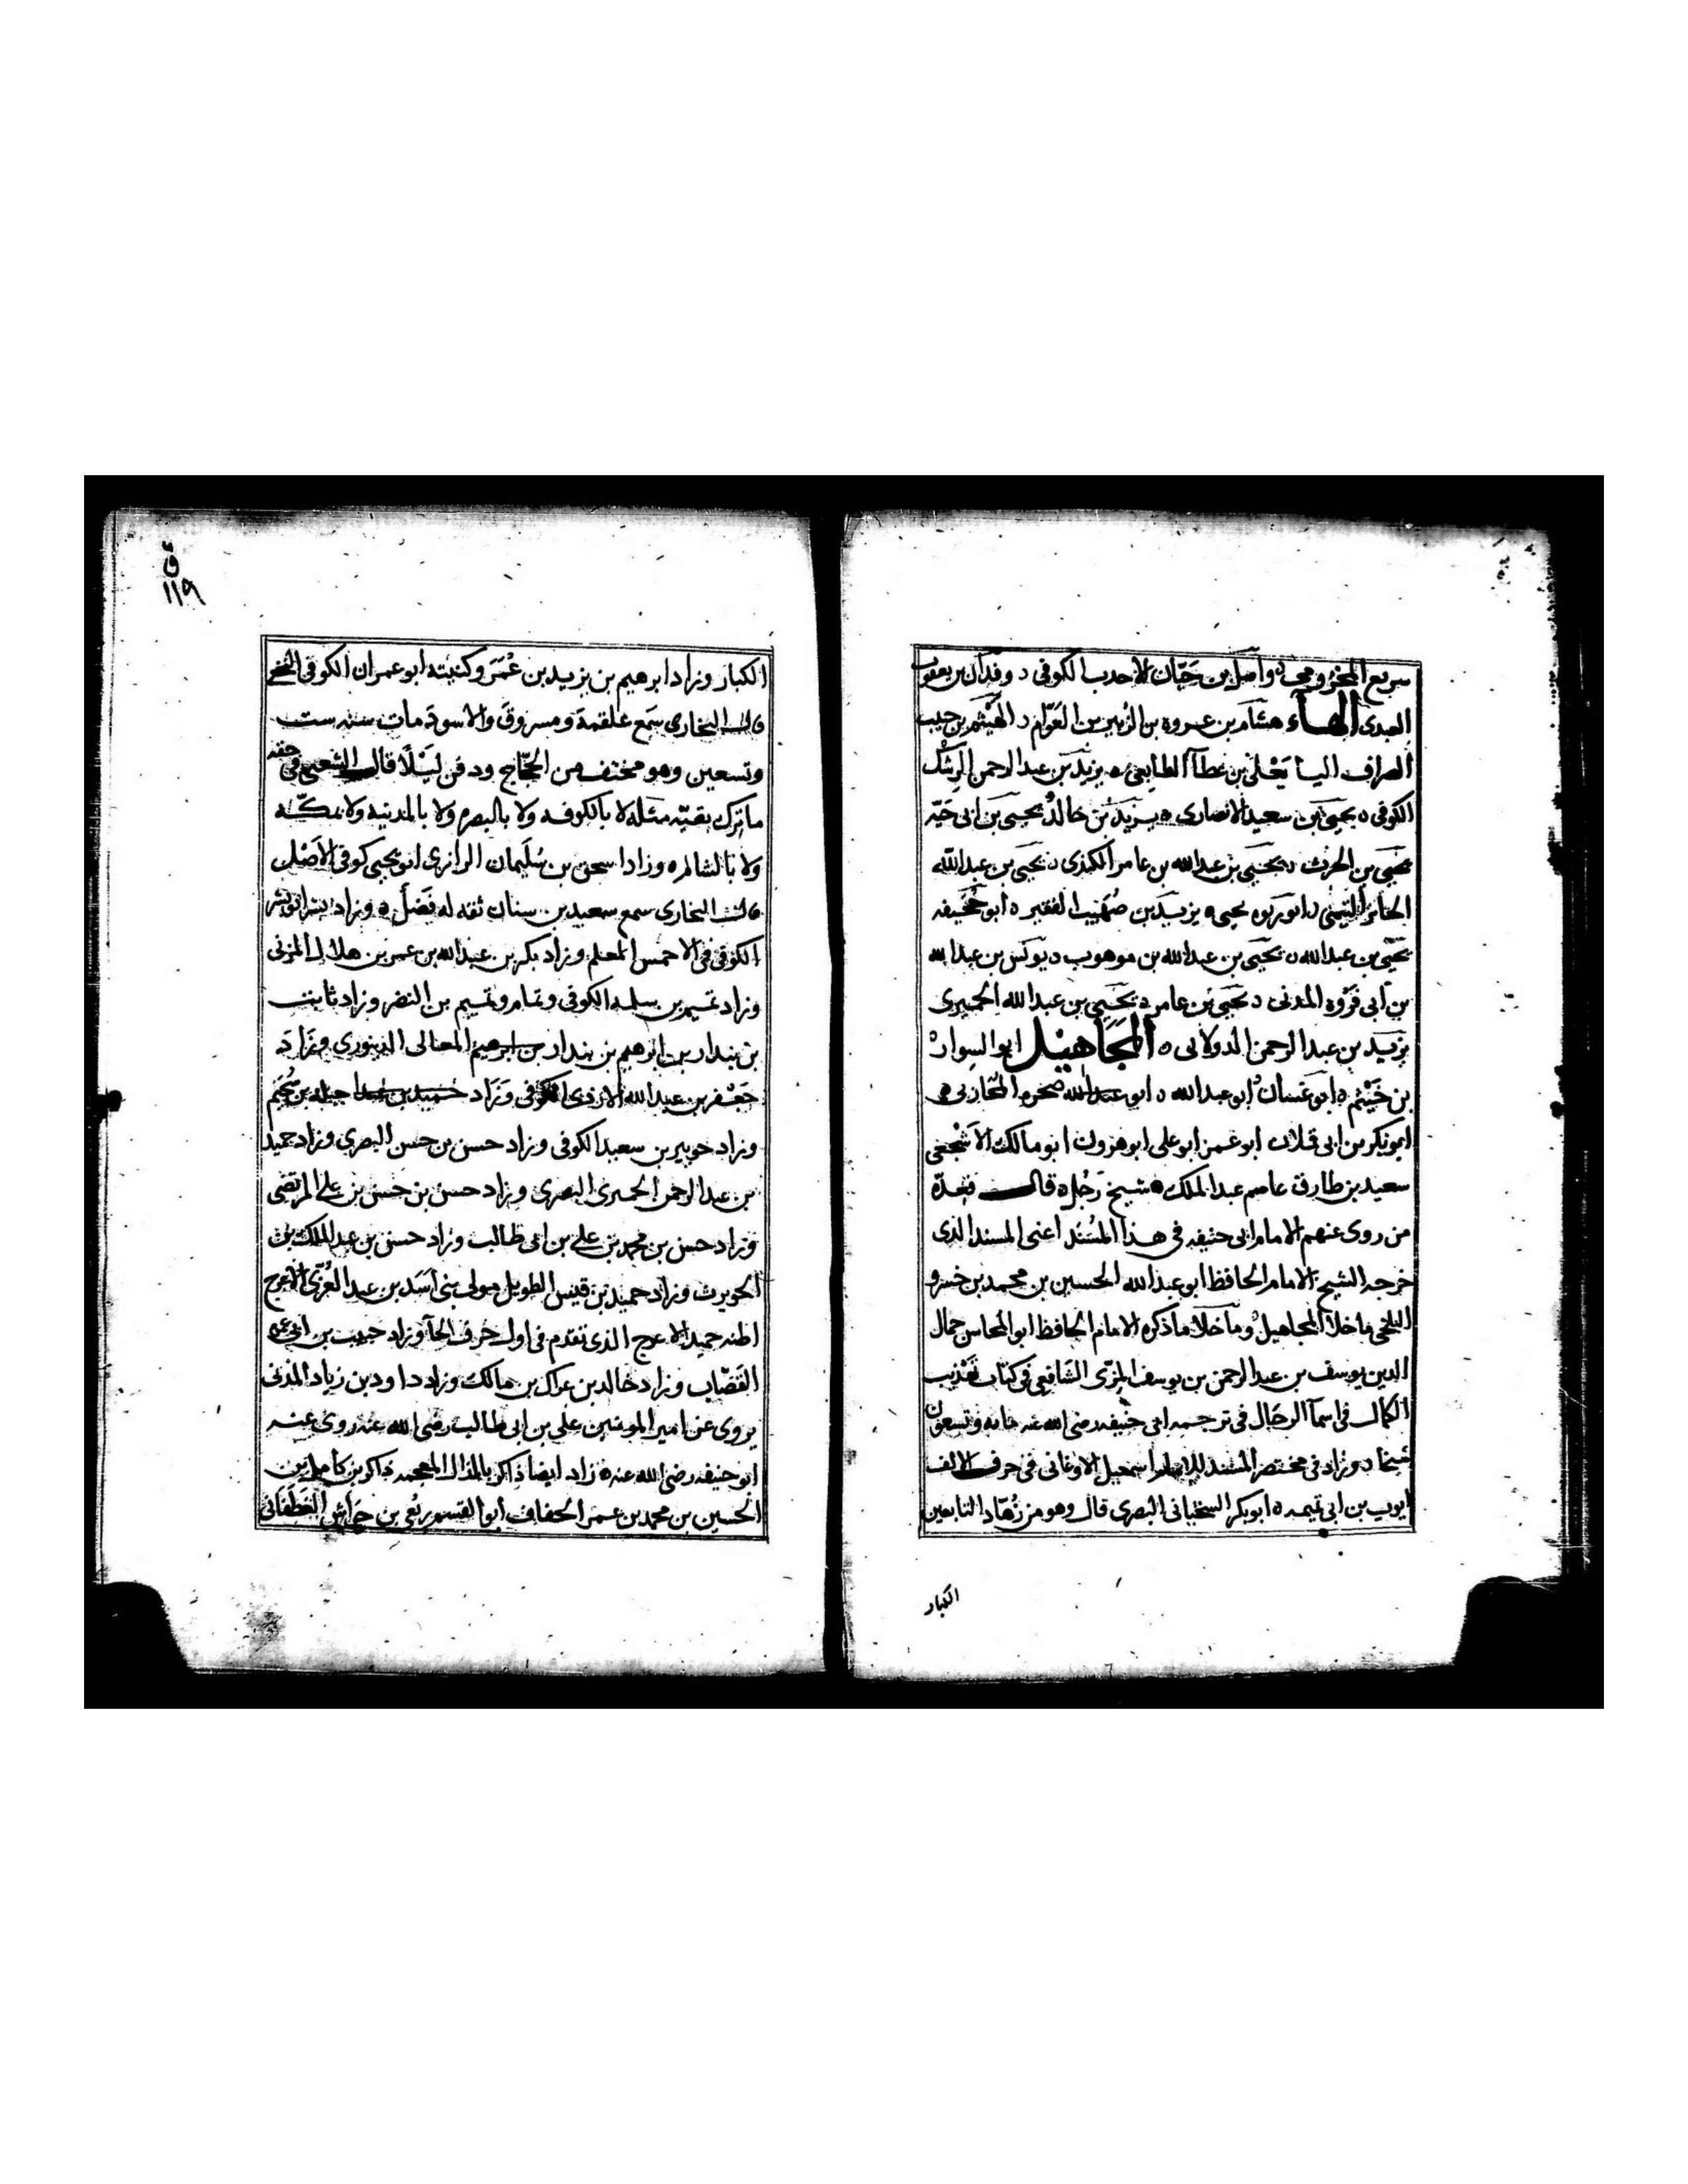 سريع المخزومى واصل بن حيّان الاحدب الكوفى د وقدان بن يعقوب
العبدى الهآء هشام بن عروة بن الزبير بن العوّام د الهيثم بن حبيب
الصراف اليا يعلى بن عطآ الطايفى ه يزيد بن عبد الرحمن الرشك
الكوفى ه يحيى بن سعيد الانصارى ه يزيد بن خالد يحيى بن ابى حيّه
يحيى بن الحرث د يحيى بن عبد الله بن عامر الكندى د يحيى بن عبد الله
التيمى يحيى ه يزيد بن صهيب الفقير ه ابو
يحيى بن عبد الله د يحيى بن عبد الله بن موهوب د يونس بن عبد الله
بن ابى فروه المدنى د يحيى بن عامر د يحيى بن عبد الله الحميرى
يزيد بن عبد الرحمن الدولابى ه المجاهيل ابو السوار
بن خيثم ه ابو غسان ابو عبد الله ه ابو صخره المحاربى
ابو بكر بن ابى ابو على ابو هرون ابو مالك الاشجعى
سعيد بن طارق عاصم عبد الملك ه شيخ رجل ه قال فعدّة
من روى عنهم الامام ابى حنيفه فى هذا المسند اعنى المسند الذى
خرجه الشيخ الامام الحافظ ابو عبد الله الحسين بن محمد بن خسرو
البلخى ما خلا المجاهيل وما خلا ما ذكره الامام الحافظ ابو المحاسن جمال
الدين يوسف بن عبد الرحمن بن يوسف المزّى الشافعى فى كتاب تهذيب
الكمال فى اسمآ الرجال فى ترجمه ابى حنيفه رضى الله عنه مايه وتسعون
شيخا د وزاد فى مختصر المسند للامام اسمعيل الاوغانى فى حرف الالف
ايوب بن ابى تيمه ه ابو بكر السختيانى البصرى قال وهو من زهّاد التابعين
الكبار
ق
١١٩
الكبار وزاد ابرهيم بن يزيد بن عمر وكنيته ابو عمران الكوفى النخعى
قال البخارى سمع علقمة ومسروق والاسود مات سنه ست
وتسعين وهو مختف من الحجّاج ودفن ليلًا قال الشعبى فى حقه
ما ترك بعده مثله لا بالكوفه ولا بالبصره ولا بالمدينه ولا بمكّه
ولا بالشام ه وزاد اسحق بن سليمان الرازى ابو يحيى كوفى الاصل
قال البخارى سمع سعيد بن سنان ثقه له فضل ه وزاد
الكوفى المعلم وزاد بكر بن عبد الله بن عمر بن هلال المزنى
وزاد تميم بن سلمه الكوفى وتمام وتميم بن النضر وزاد ثابت
بن بندار بن ابرهيم بن بندار بن ابرهيم المعالى الدينورى وزاد
جعفر بن عبد الله الازدى الكوفى وزاد جبله بن سحيم
وزاد جويبر بن سعيد الكوفى وزاد حسن بن حسن البصرى وزاد حميد
بن عبد الرحمن الحميرى البصرى وزاد حسن بن حسن بن على المرتضى
وزاد حسن بن محمد بن على بن ابى طالب وزاد حسن بن عبد الملك بن
الحويرث وزاد حميد بن قيس الطويل مولى بنى اسد بن عبد العزّى الاعرج
اظنه حميد الاعرج الذى تقدم فى اول حرف الحآ وزاد حبيب بن ابى عمره
القصّاب وزاد خالد بن عراك بن مالك وزاد داود بن زياد المدنى
يروى عن امير المومنين على بن ابى طالب رضى الله عنه روى عنه
ابو حنيفه رضى الله عنه ه زاد ايضا ذاكر بالذال المعجمه ذاكر بن كامل بن
الحسين بن محمد بن عمر الخفاف ابو القسم ربعى بن حراش الغطفانى